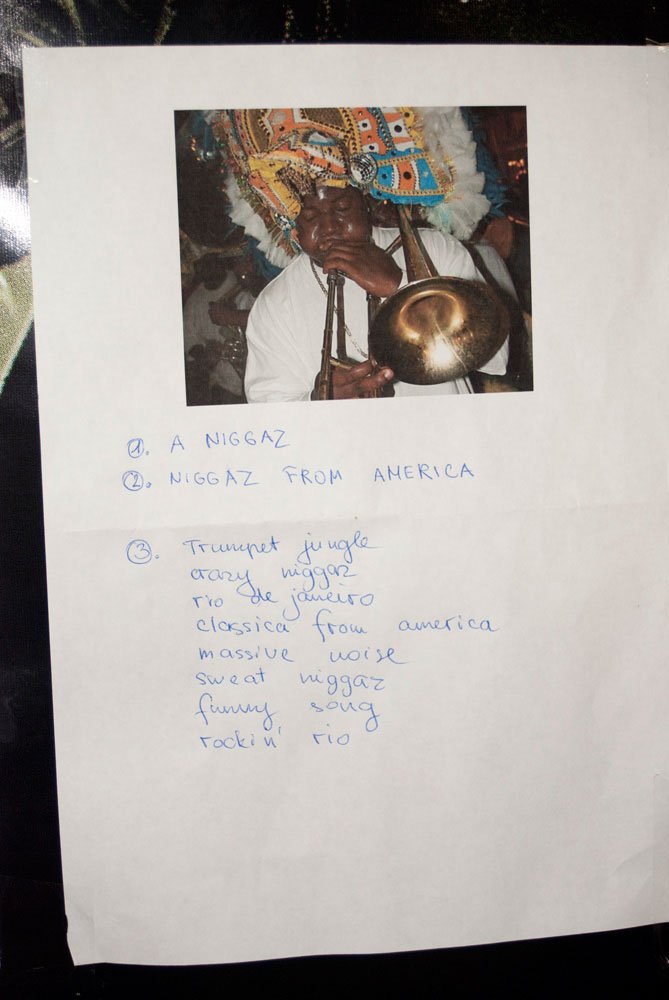 1. A NIGGAZ
2. NIGGAZ FROM AMERICA
3. Trumpet jungle
crazy niggaz
rio de janeiro
classica from america
massive noise
sweat niggaz
funny song
rockin' rio